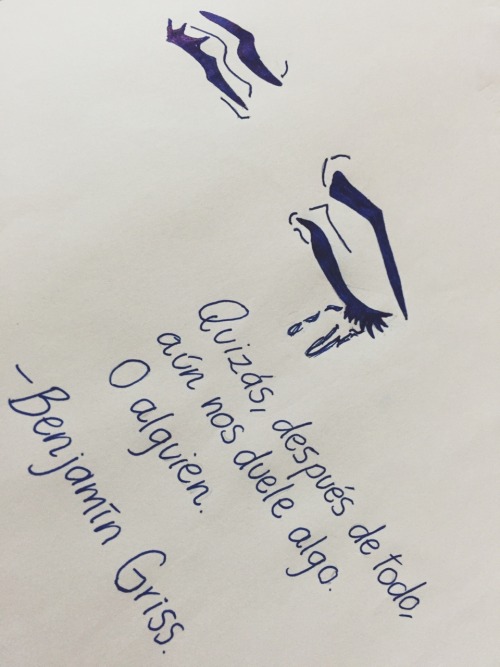 Quizás, después de todo,
aún nos duele algo.
O alguien.
-Benjamín Griss.